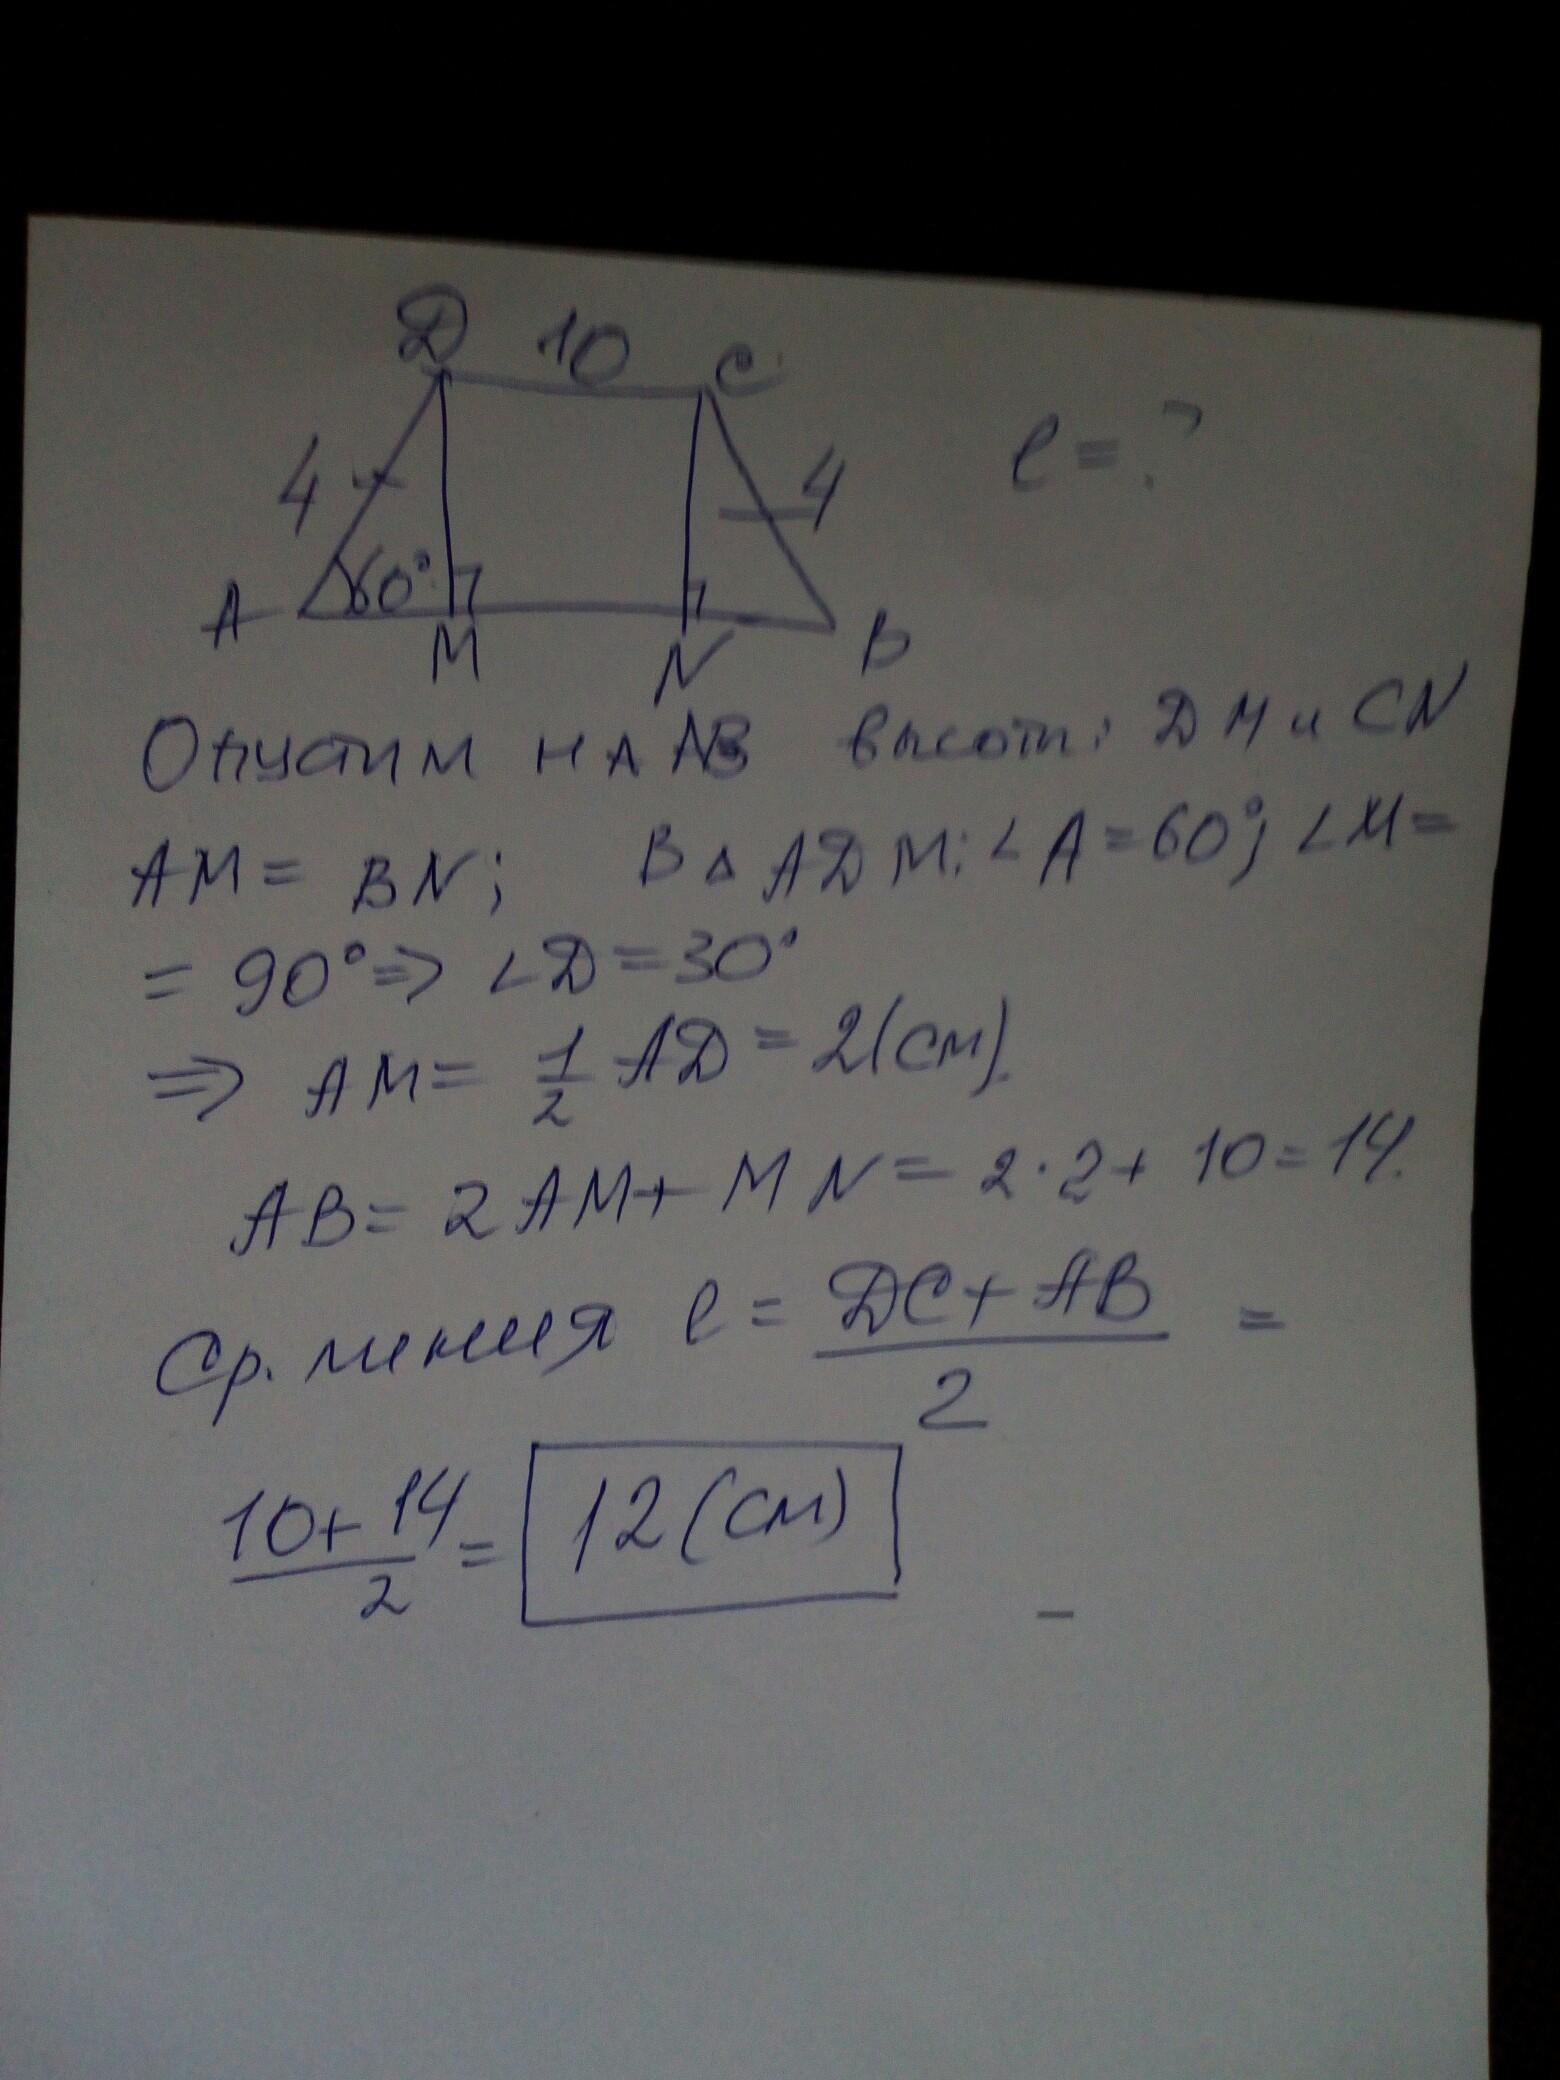 D 10 C
4 4 l = ?
A 60° M N B
Опустим на AB высоты DM и CN
AM = BN; В △ ADM: ∠A = 60°; ∠M =
= 90° => ∠D = 30°
=> AM = 1/2 AD = 2 (см).
AB = 2AM + MN = 2 · 2 + 10 = 14.
Ср. линия l = (DC + AB)/2 =
(10 + 14)/2 = 12 (см)